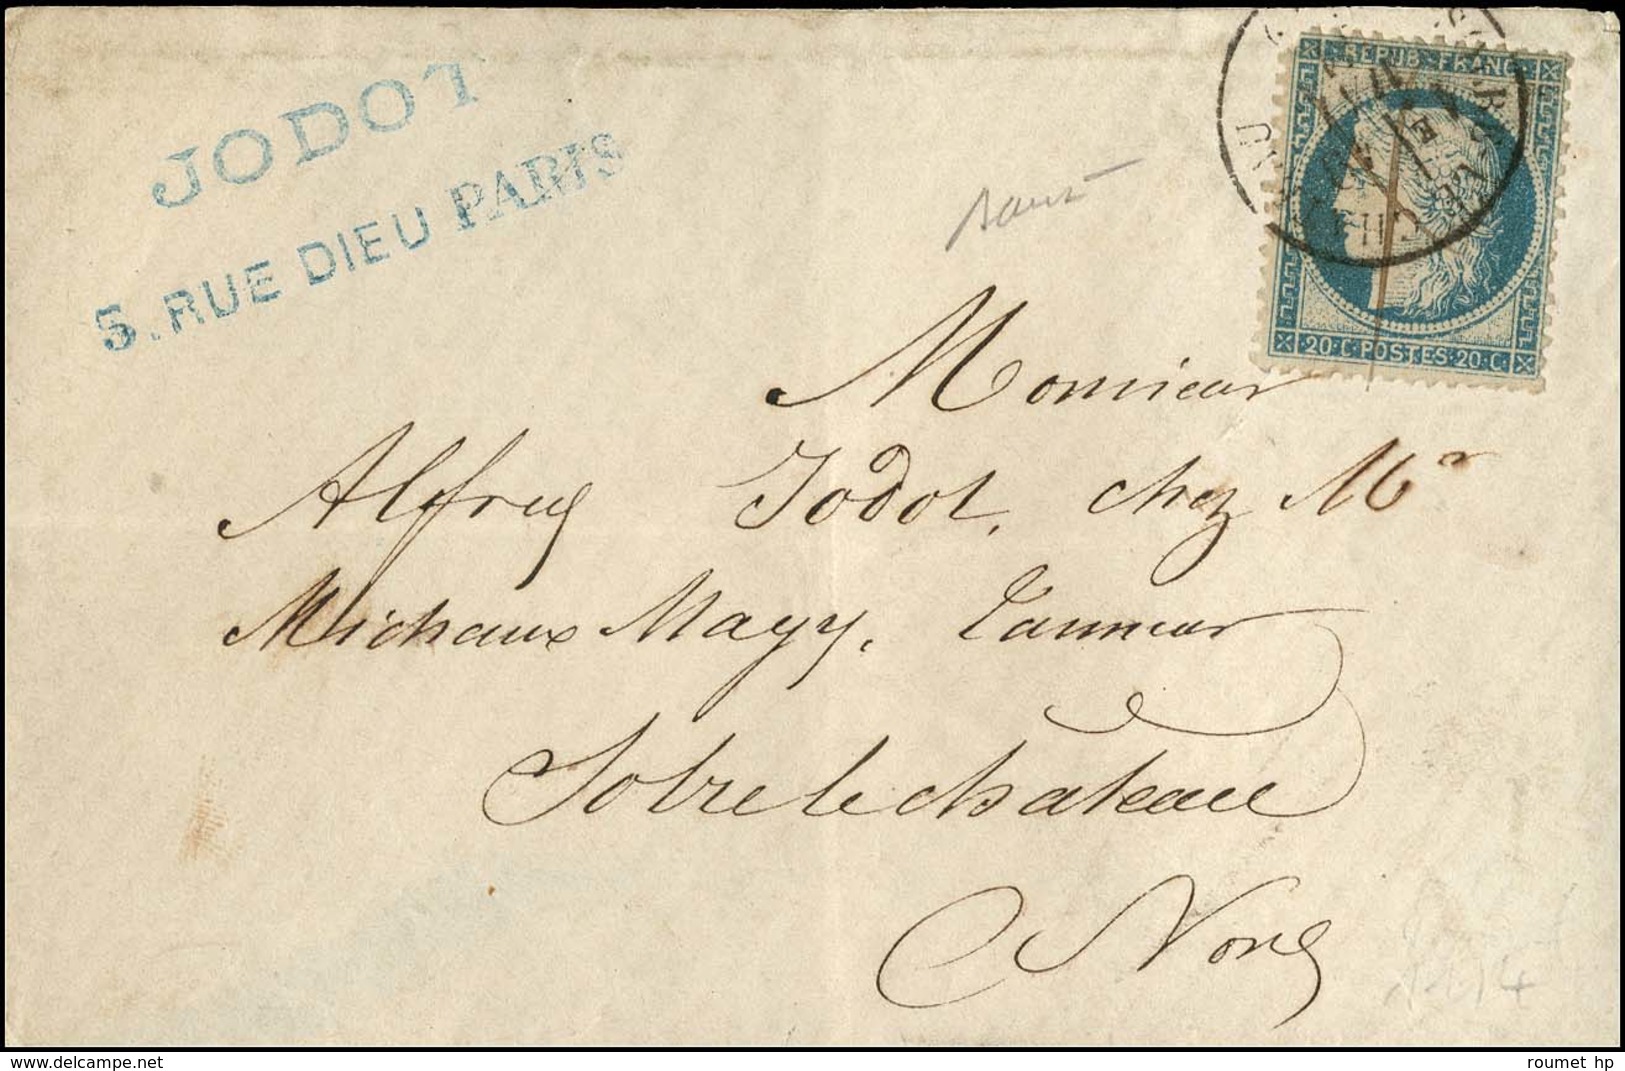 JODOT
5. RUE DIEU PARIS
REPUB. FRANC
20·C·POSTES·20·C
Monsieur
Alfred Jodot, chez Mr
Michaux Mayy, Tanneur
Solre le château
Nord
1114
roumet hp